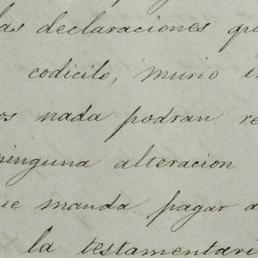 las declaraciones que
codicilo, murio
os nada podran re
ninguna alteracion
ue manda pagar a
la testamentari